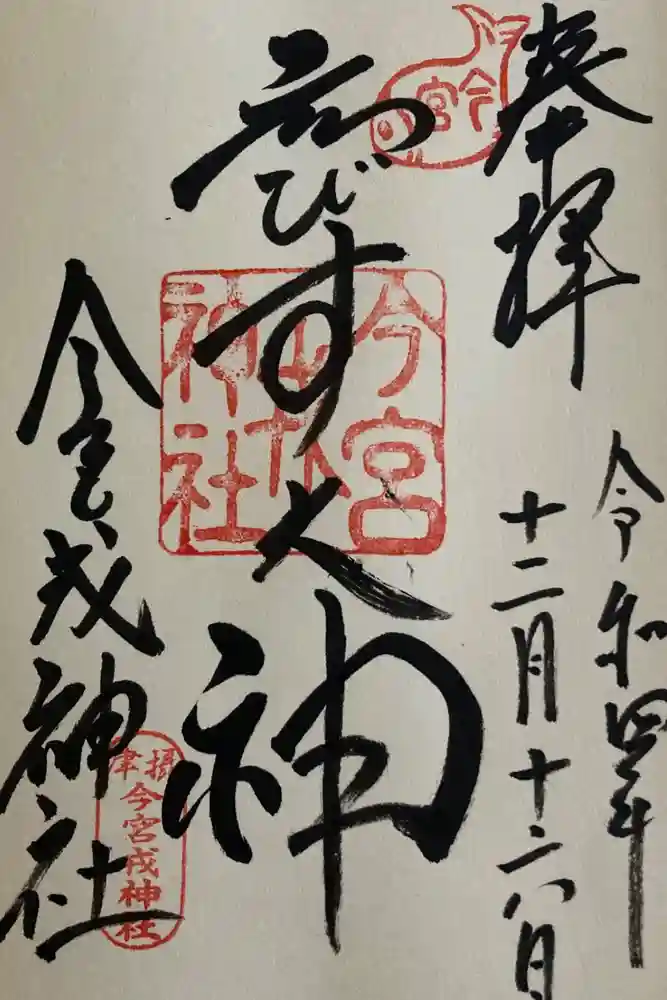 奉拝
令和四年
十二月十六日
今宮
ゑびす大神
今宮
神社
今宮戎神社
摂津
今宮戎神社